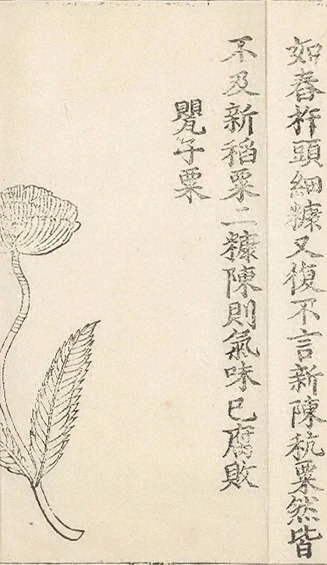 如舂杵頭細糠又復不言新陳秔粟然皆
不及新稻粟二糠陳則氣味已腐敗
罌子粟